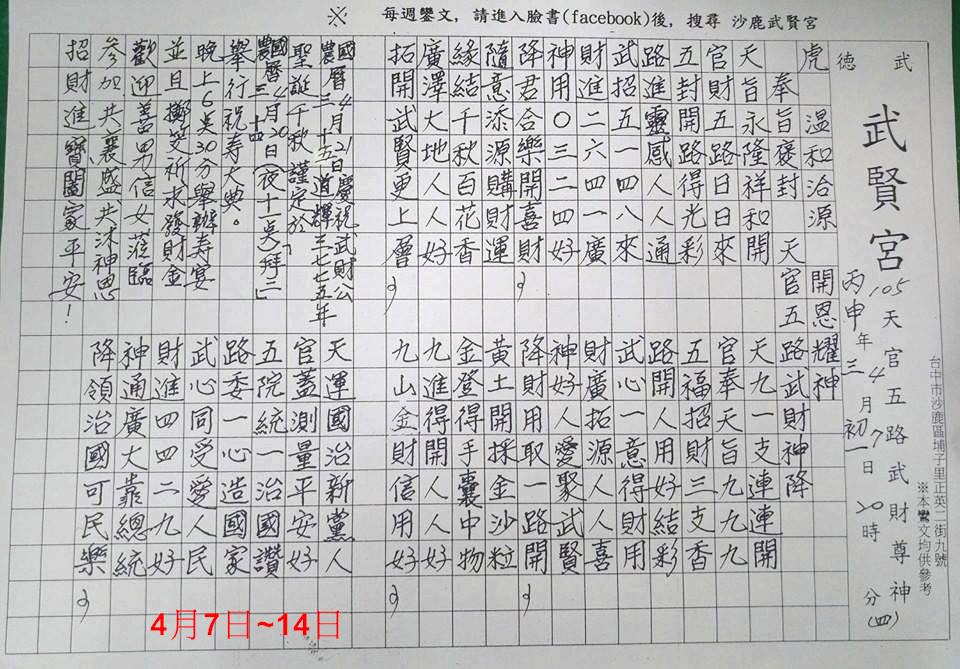 ※ 每週鑾文，請進入臉書(facebook)後，搜尋 沙鹿武賢宮
武德
武賢宮
台中市沙鹿區埔子里正英二街九號
※本鸞文均供參考
105天官五路武財尊神(四)
丙申年三月初一日20時 分
4 7
虎溫和治源開恩耀神
奉旨褒封天官五路武財神降
天旨永隆祥和開
官財五路日日來
五封開路得光彩
路進靈感人人通
武招五一四八來
財進二六四一廣
神用〇三二四好
降君合樂開喜財
隨意添源購財運
緣結千秋百花香
廣澤大地人人好
拓開武賢更上層
國曆4月21日慶祝武財公
農曆三十五道輝三七七五年
聖誕千秋謹定於
國曆4月20日(夜十一点拜三)
農曆三十四
舉行祝寿大典。
晚上6点30分舉辦寿宴
並且擲筊祈求發財金
歡迎善男信女蒞臨
參加共襄盛、共沐神恩
招財進寶、闔家平安！
天九一支連連開
官奉天旨九九九
五福招財三支香
路開人用好結彩
武心一意得財用
財廣拓源人人喜
神好人愛聚武賢
降財用取一路開
黃土開採金沙粒
金登得手囊中物
九進得開人人好
九山金財信用好
天運國治新黨人
官蓋測量平安好
五院統一治國讚
路委一心造國家
武心同受愛人民
財進四四二九好
神通廣大靠總統
降領治國可民樂
4月7日~14日